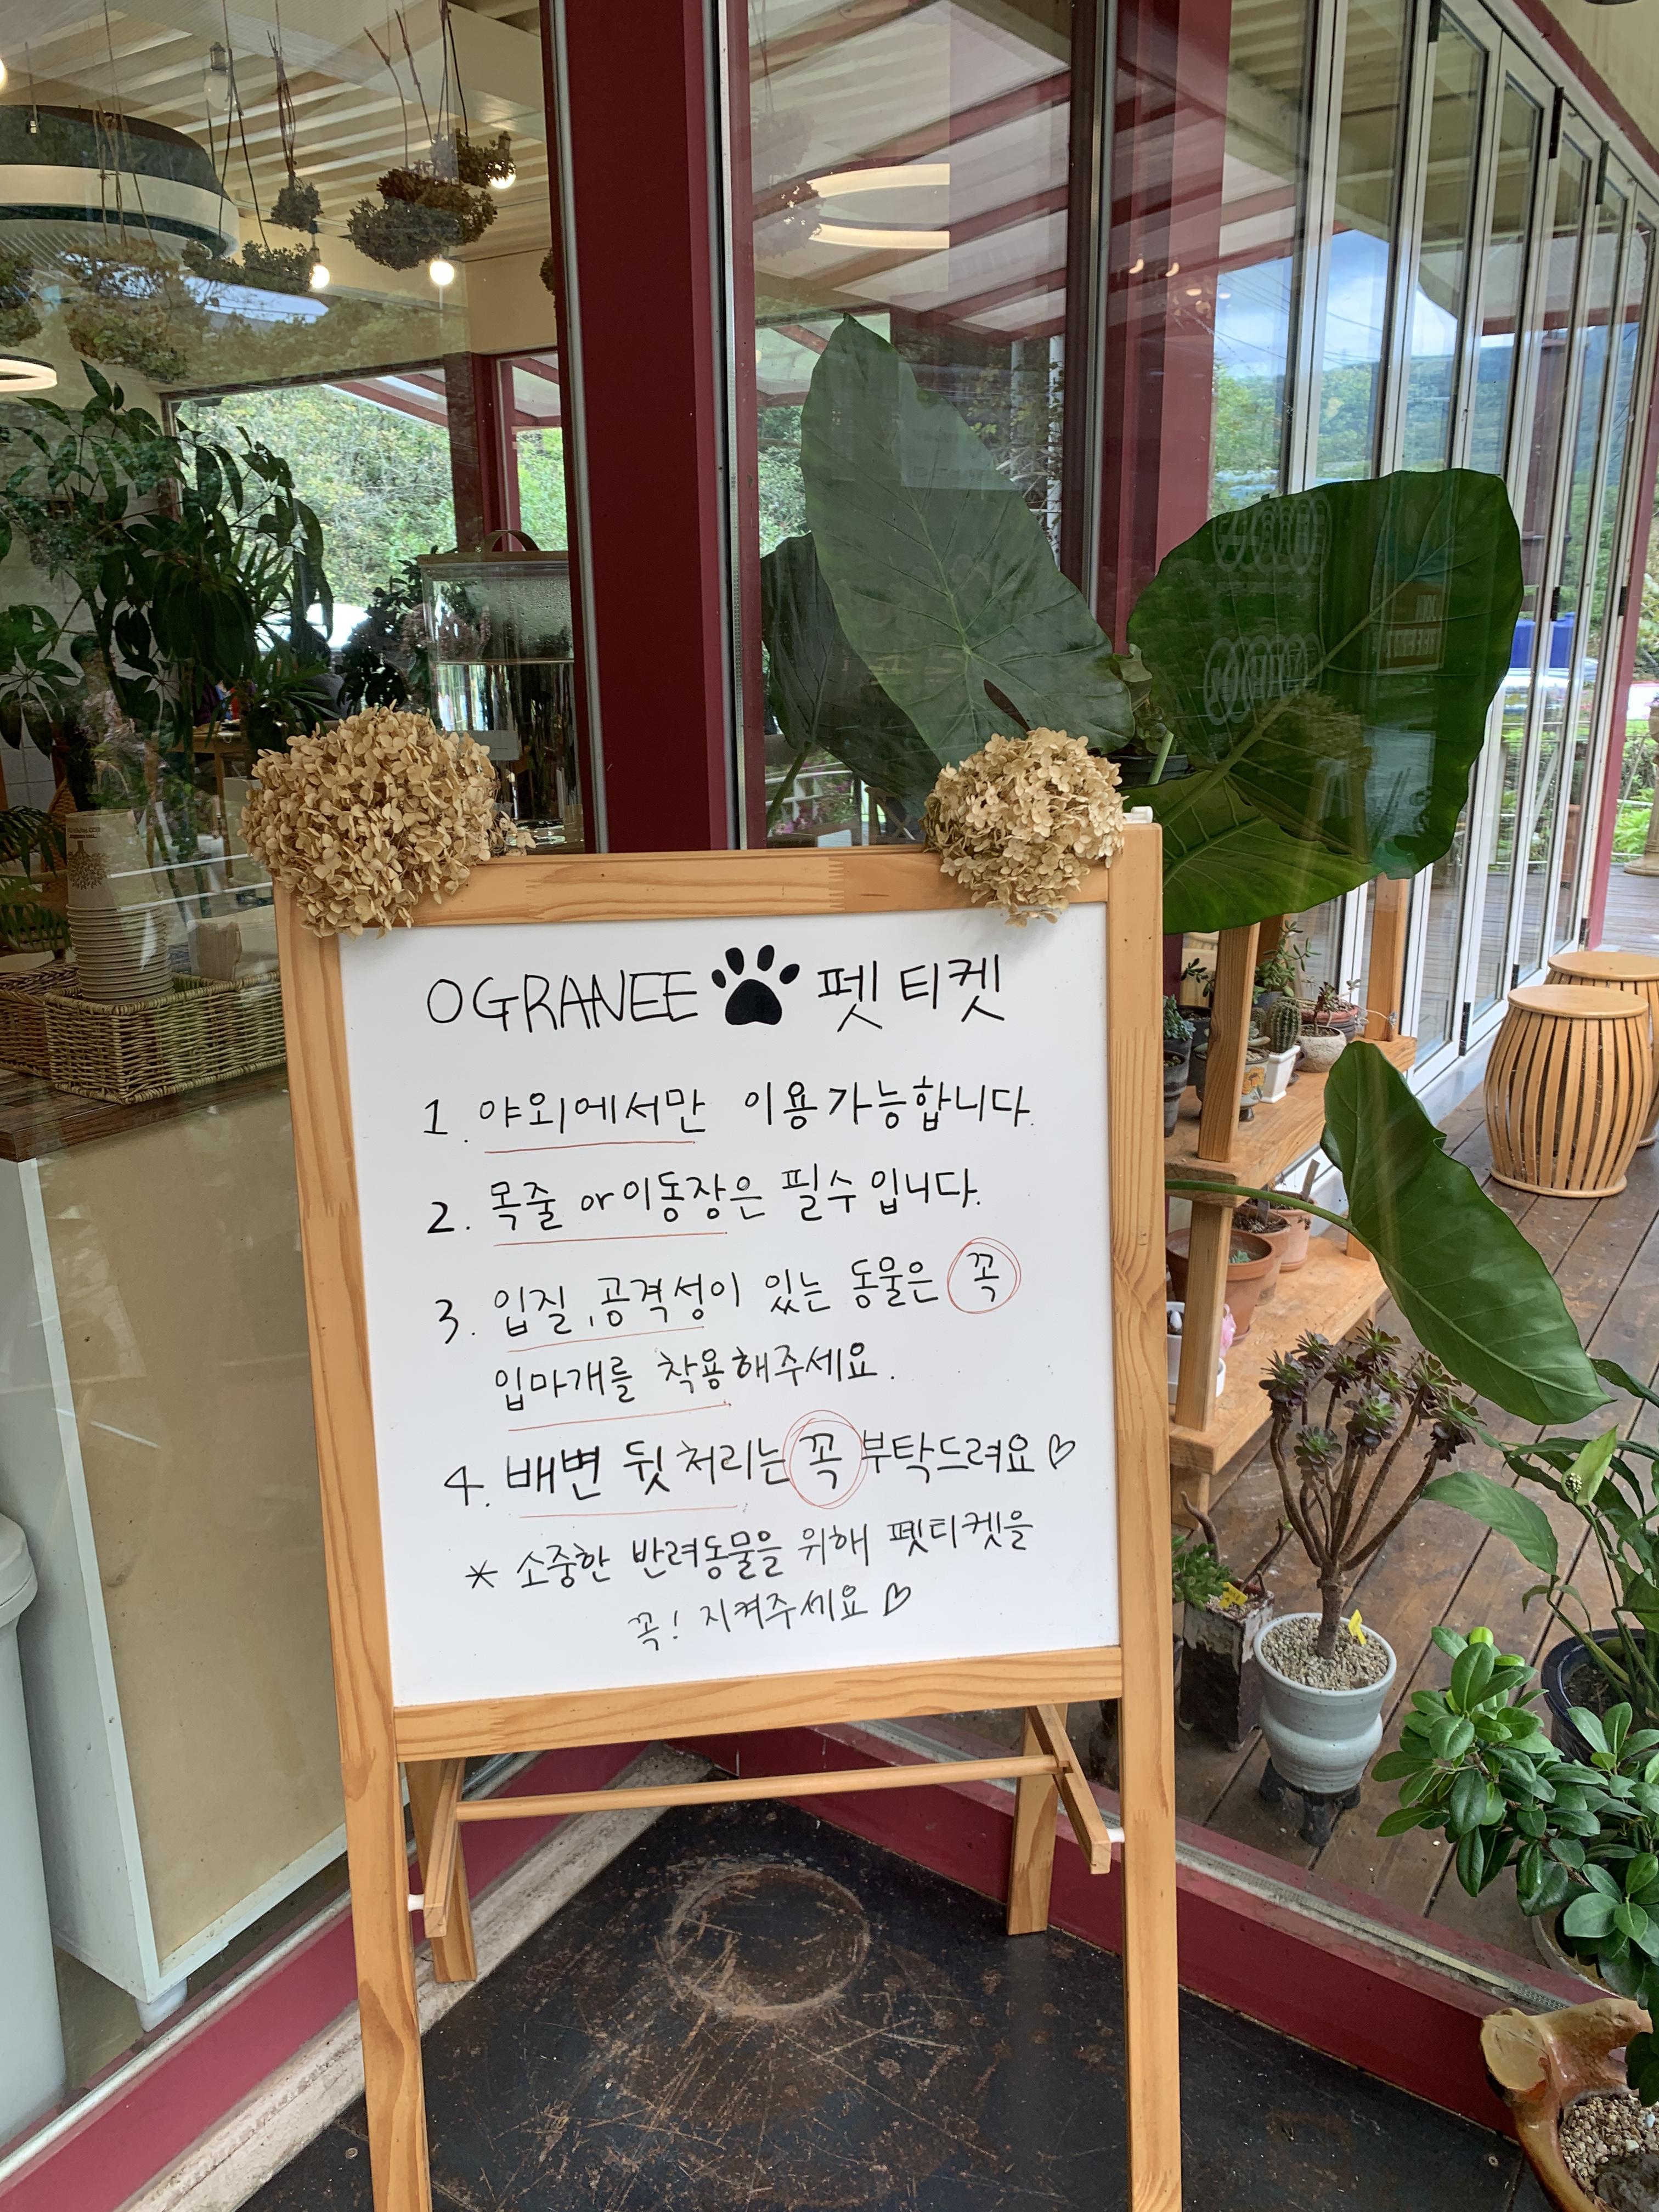 OGRANEE 펫티켓
1. 야외에서만 이용가능합니다.
2. 목줄 or 이동장은 필수입니다.
3. 입질, 공격성이 있는 동물은 꼭
입마개를 착용해주세요.
4. 배변 뒷처리는 꼭 부탁드려요♡
* 소중한 반려동물을 위해 펫티켓을
꼭! 지켜주세요♡